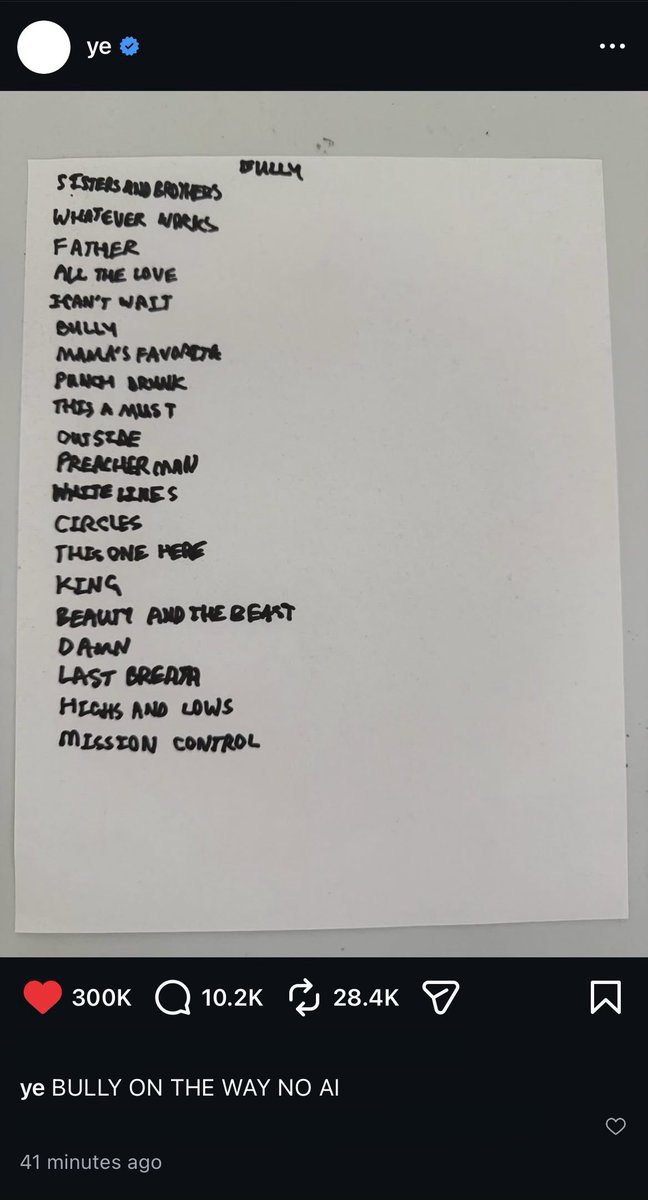 ye
BULLY
SISTERS AND BROTHERS
WHATEVER WORKS
FATHER
ALL THE LOVE
I CAN'T WAIT
BULLY
MAMA'S FAVORITE
PUNCH DRUNK
THIS A MUST
OUTSIDE
PREACHER MAN
WHITE LINES
CIRCLES
THIS ONE HERE
KING
BEAUTY AND THE BEAST
DAMN
LAST BREATH
HIGHS AND LOWS
MISSION CONTROL
300K 10.2K 28.4K
ye BULLY ON THE WAY NO AI
41 minutes ago